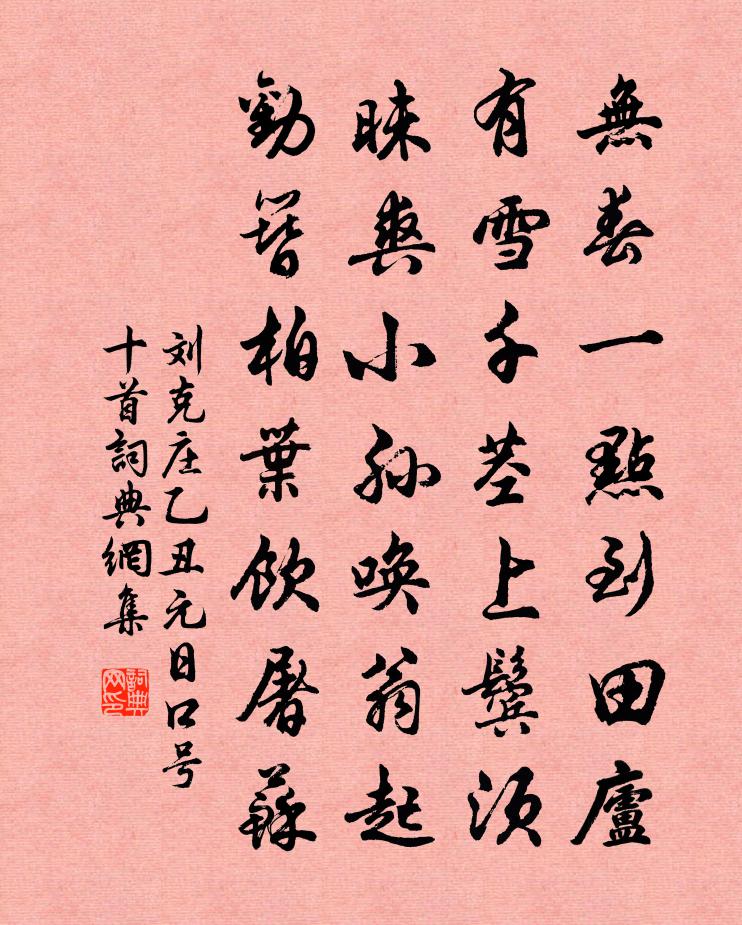 無春一點到田廬
有雪千莖上鬢須
昧爽小孫喚翁起
勸簪柏葉飲屠蘇
刘克庄乙丑元日口号
十首詞典網集
詞典网印